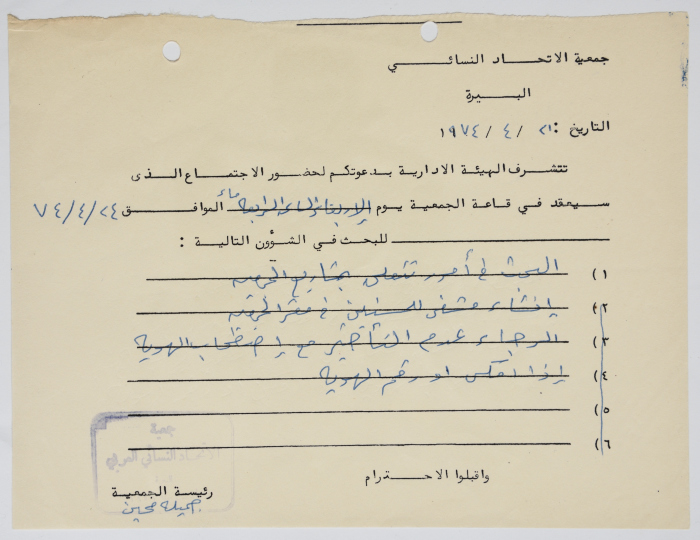 جمعية الاتحاد النسائي
البيرة
التاريخ : ٢١ / ٤ / ١٩٧٤
تتشرف الهيئة الادارية بدعوتكم لحضور الاجتماع الذى
سيعقد في قاعة الجمعية يوم الاربعاء الساعة الرابعة مساء الموافق ٧٤/٤/٢٤
للبحث في الشؤون التالية :
١) البحث في أمور تتعلق بمشاريع الجمعية
٢) إنشاء مشفى للمسنين في مقر الجمعية
٣) الرجاء عدم التأخير مع إصطحاب الهوية
٤) إذا أمكن او رقم الهوية
٥)
٦)
واقبلوا الاحترام
رئيسة الجمعية
جمعية
الاتحاد النسائي العربي